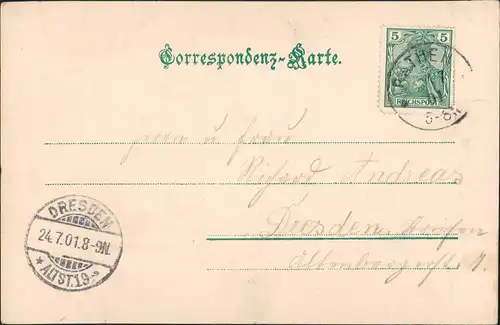 Correspondenz-Karte.
5 5
REICHSPOST
RATHEN
01
5-6N
u Frau
Richard Andreas
Dresden
DRESDEN
24.7.01.8-9N.
*ALTST.19